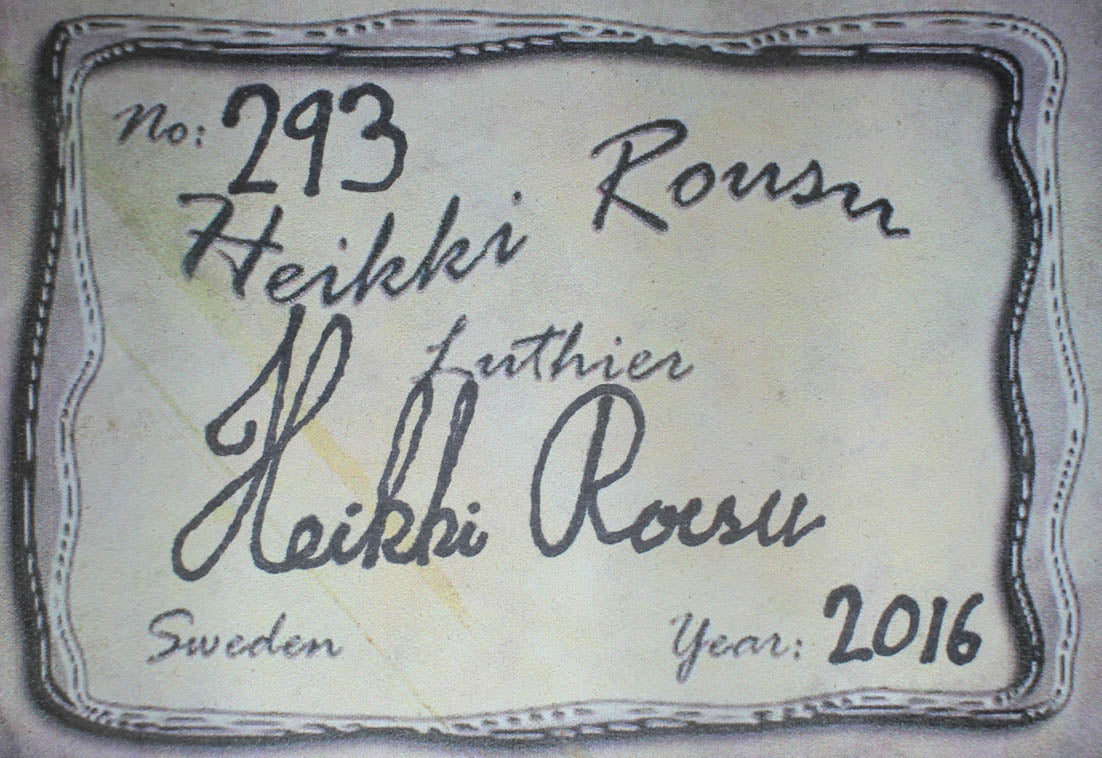 No: 293
Heikki Rousu
Luthier
Heikki Rousu
Sweden Year: 2016